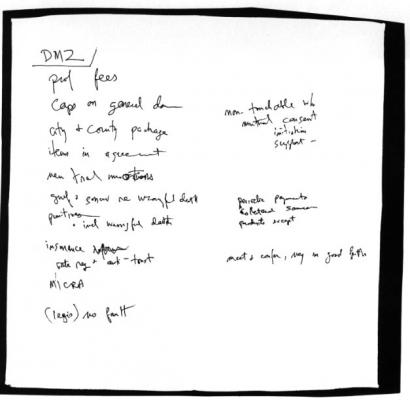 DMZ
prof fees
Caps on general dam
city & County package
items in agreement
new trial motions
grief & sorrow re wrongful death
punitives
• incl wrongful death
insurance reform
rate reg & anti-trust
MICRA
(legis) no fault
non touchable w/o
mutual consent
initiative
support -
periodic payments
collateral source
products except
meet & confer, neg in good faith